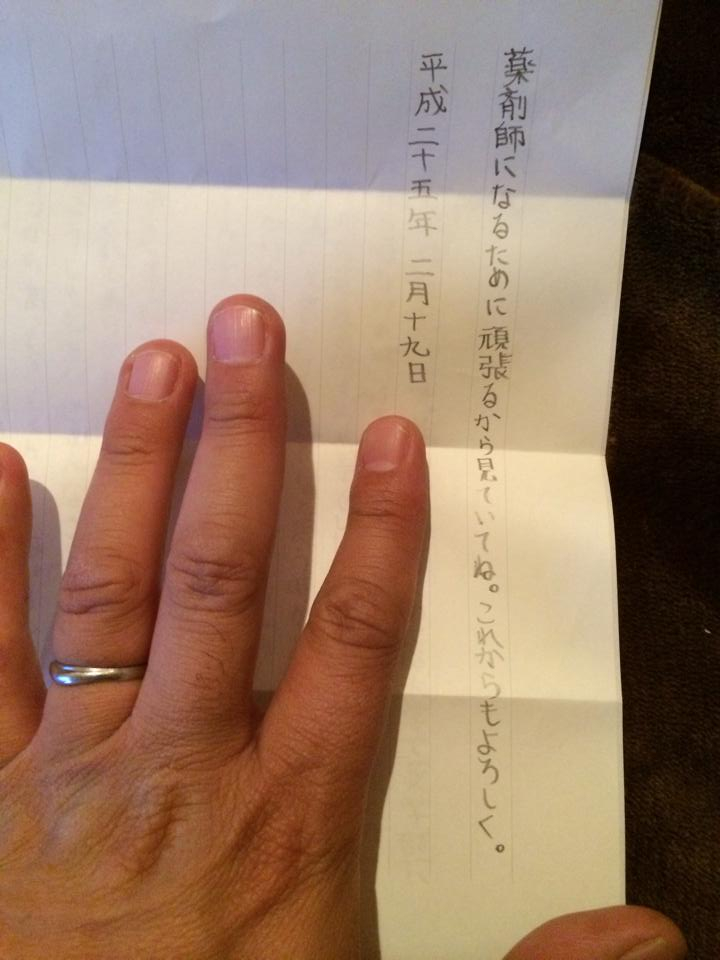 薬剤師になるために頑張るから見ていてね。これからもよろしく。
平成二十五年 二月十九日